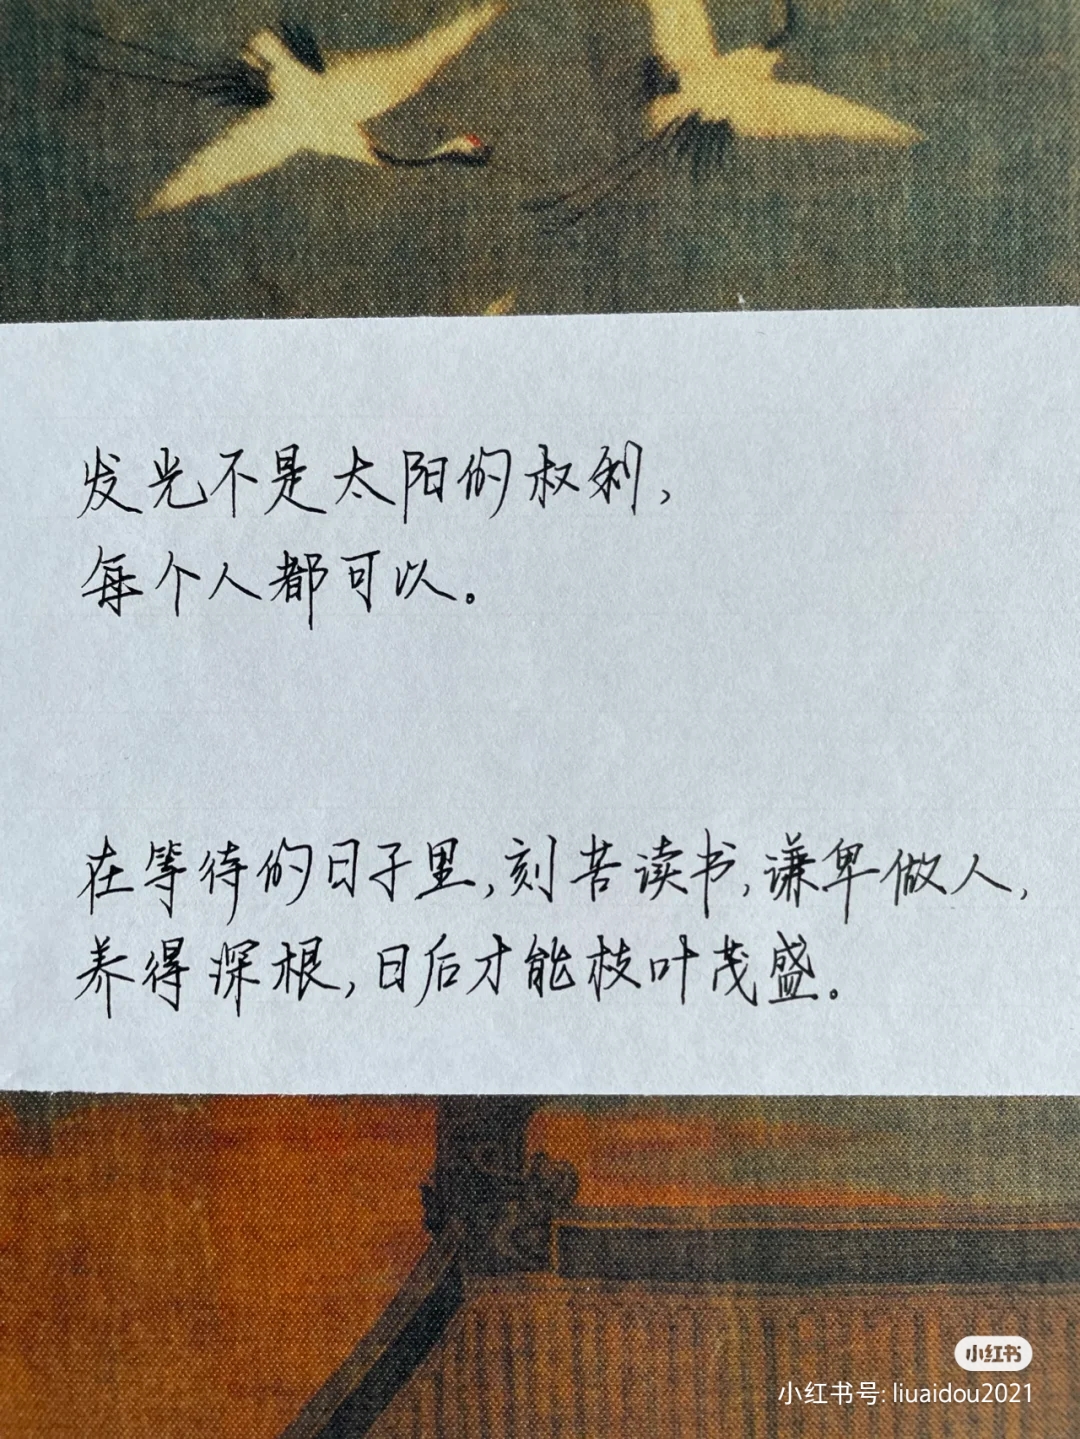 发光不是太阳的权利，
每个人都可以。
在等待的日子里，刻苦读书，谦卑做人，
养得深根，日后才能枝叶茂盛。
小红书
小红书号: liuaidou2021